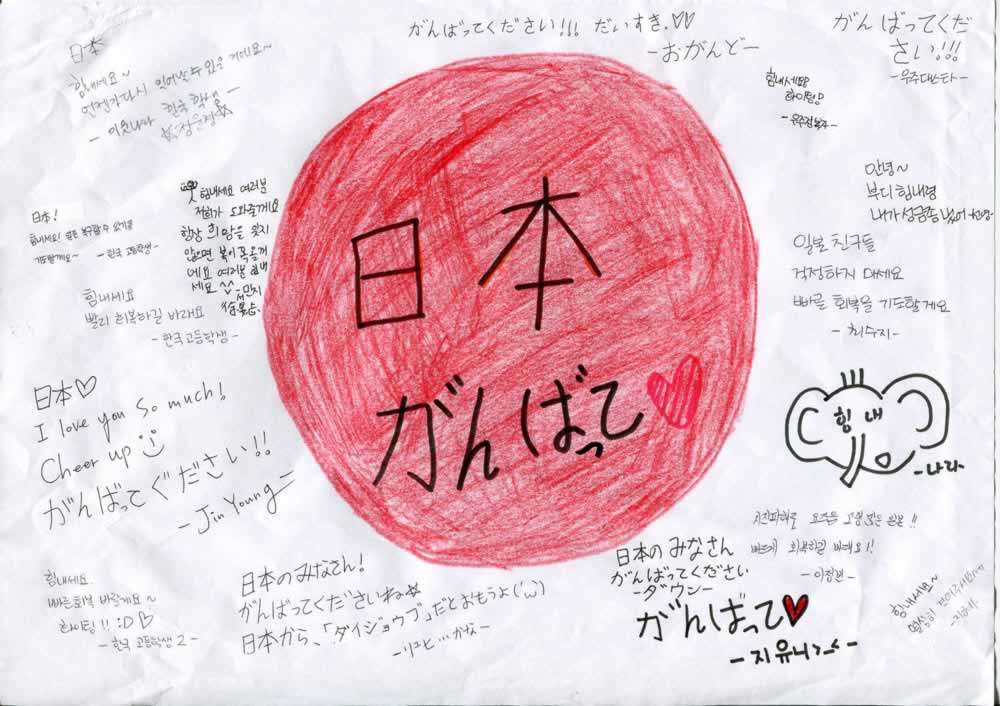 日本
힘내세요~
언젠가 다시 일어날 수 있을 거에요~
- 이웃나라 한국 학생 -
がんばってください!!! だいすき.♡♡
-おがんど-
がんばってくだ
さい!!!
-우주대스타-
힘내세요
화이팅
안녕~
부디 힘내렴
내가 성금
일본 친구들
걱정하지 마세요
빠른 회복을 기도할게요
- 최수지 -
日本!
힘내세요!
기도할게요~ - 한국 고등학생 -
힘내세요 여러분
저희가 도와줄게요
항상 희망을 잊지
않으면 복이
여러분 힘내
세요 ^^
힘내세요
빨리 회복하길 바래요
- 한국고등학생 -
日本
がんばって♥
日本♡
I love you so much!
Cheer up
がんばってください!!
- Jin Young -
힘내
-나라-
요즘
빠르게 회복하길 바래요!!
힘내세요
빠른 회복 바랄게요~
화이팅!! :D ♡
- 한국 고등학생 2 -
日本のみなさん!
がんばってくださいね☆
日本から、「ダイジョウブ」だとおもうよ('ω')
日本のみなさん
がんばってください
-ダウン-
がんばって♥
- 지유니>_< -
힘내세요~
열심히